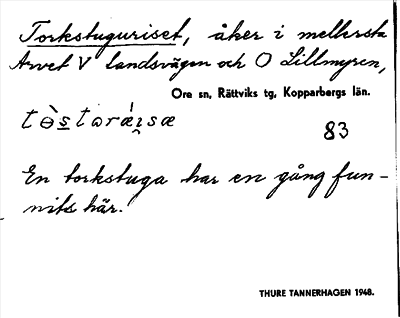 Torkstuguriset, åker i mellersta
Arvet V landsvägen och O Lillmyren,
Ore sn, Rättviks tg, Kopparbergs län.
83
En torkstuga har en gång fun-
nits här.
THURE TANNERHAGEN 1948.